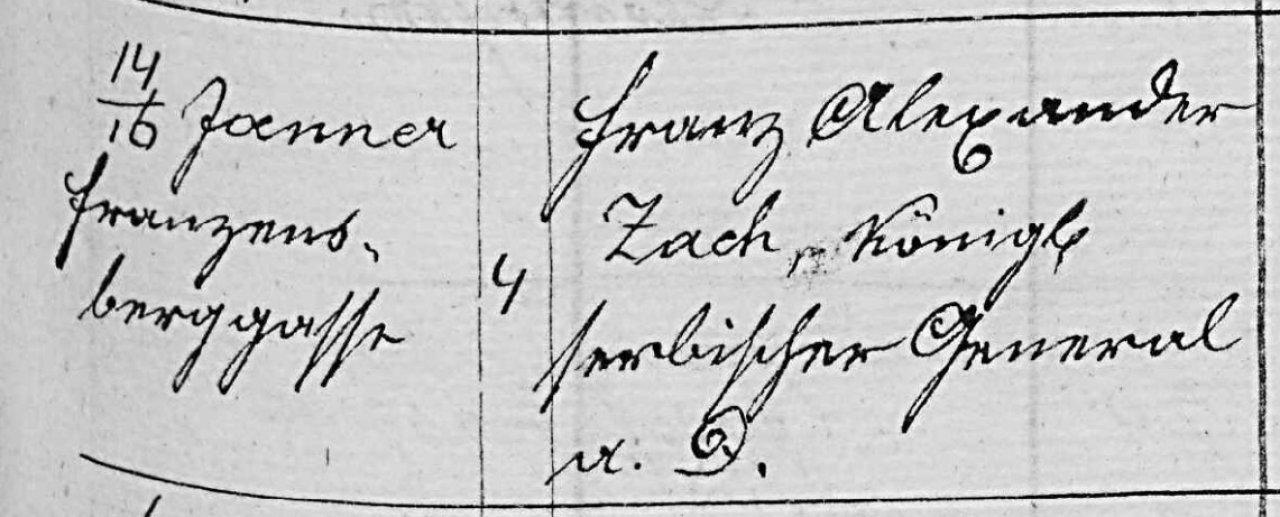 14
16 Jänner
Franzens-
berggasse
4
Franz Alexander
Zach, königl
serbischer General
a. D.